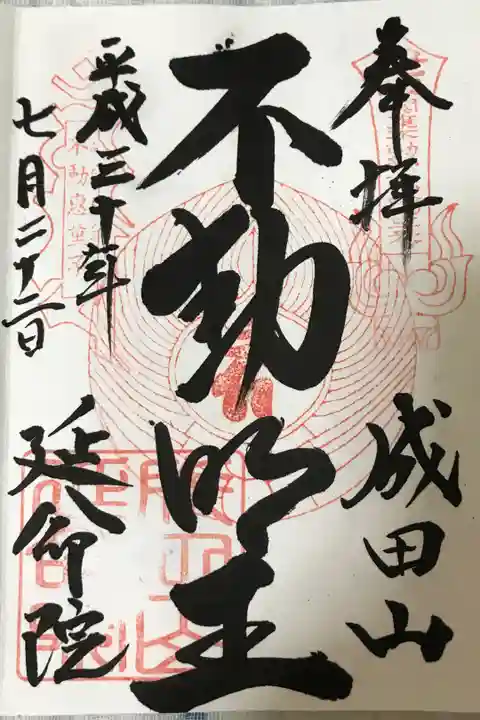 奉拝
成田山
不動明王
平成三十年
七月二十二日
延命院